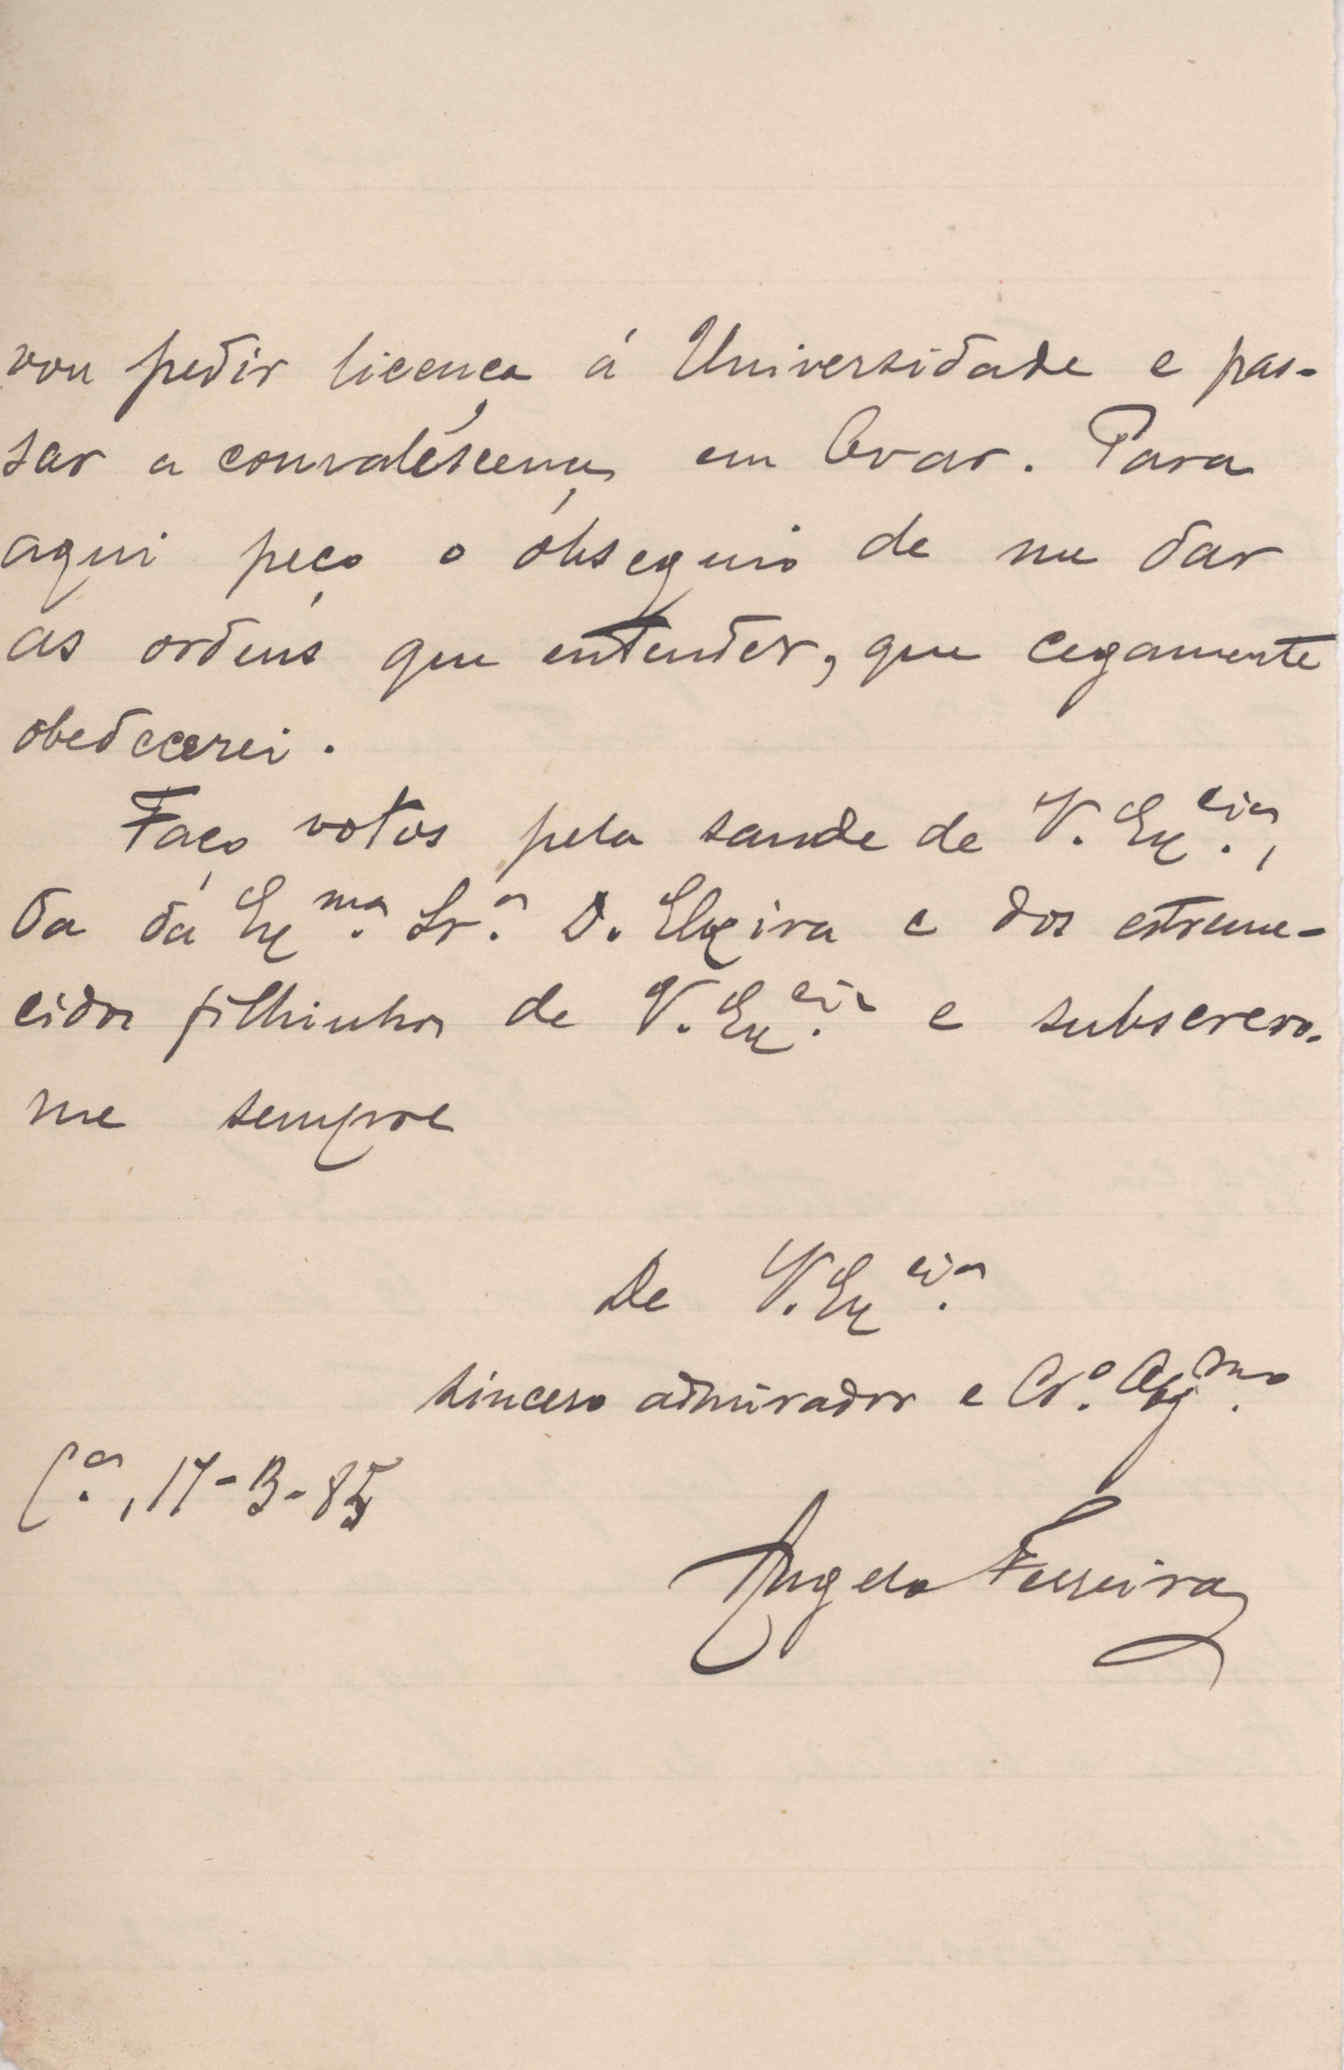 vou pedir licença á Universidade e pas-
sar a convalescença em Ovar. Para
aqui peço o obsequio de me dar
as ordens que entender, que cegamente
obedecerei.
Faço votos pela saude de V. Ex.cia,
da da Ex.ma Sr.a D. Elzira e dos estreme-
cidos filhinhos de V. Ex.cia e subscrevo-
me sempre
De V. Ex.cia
sincero admirador e Cr.o Obg.mo
C.a, 17-3-85
Angelo Ferreira